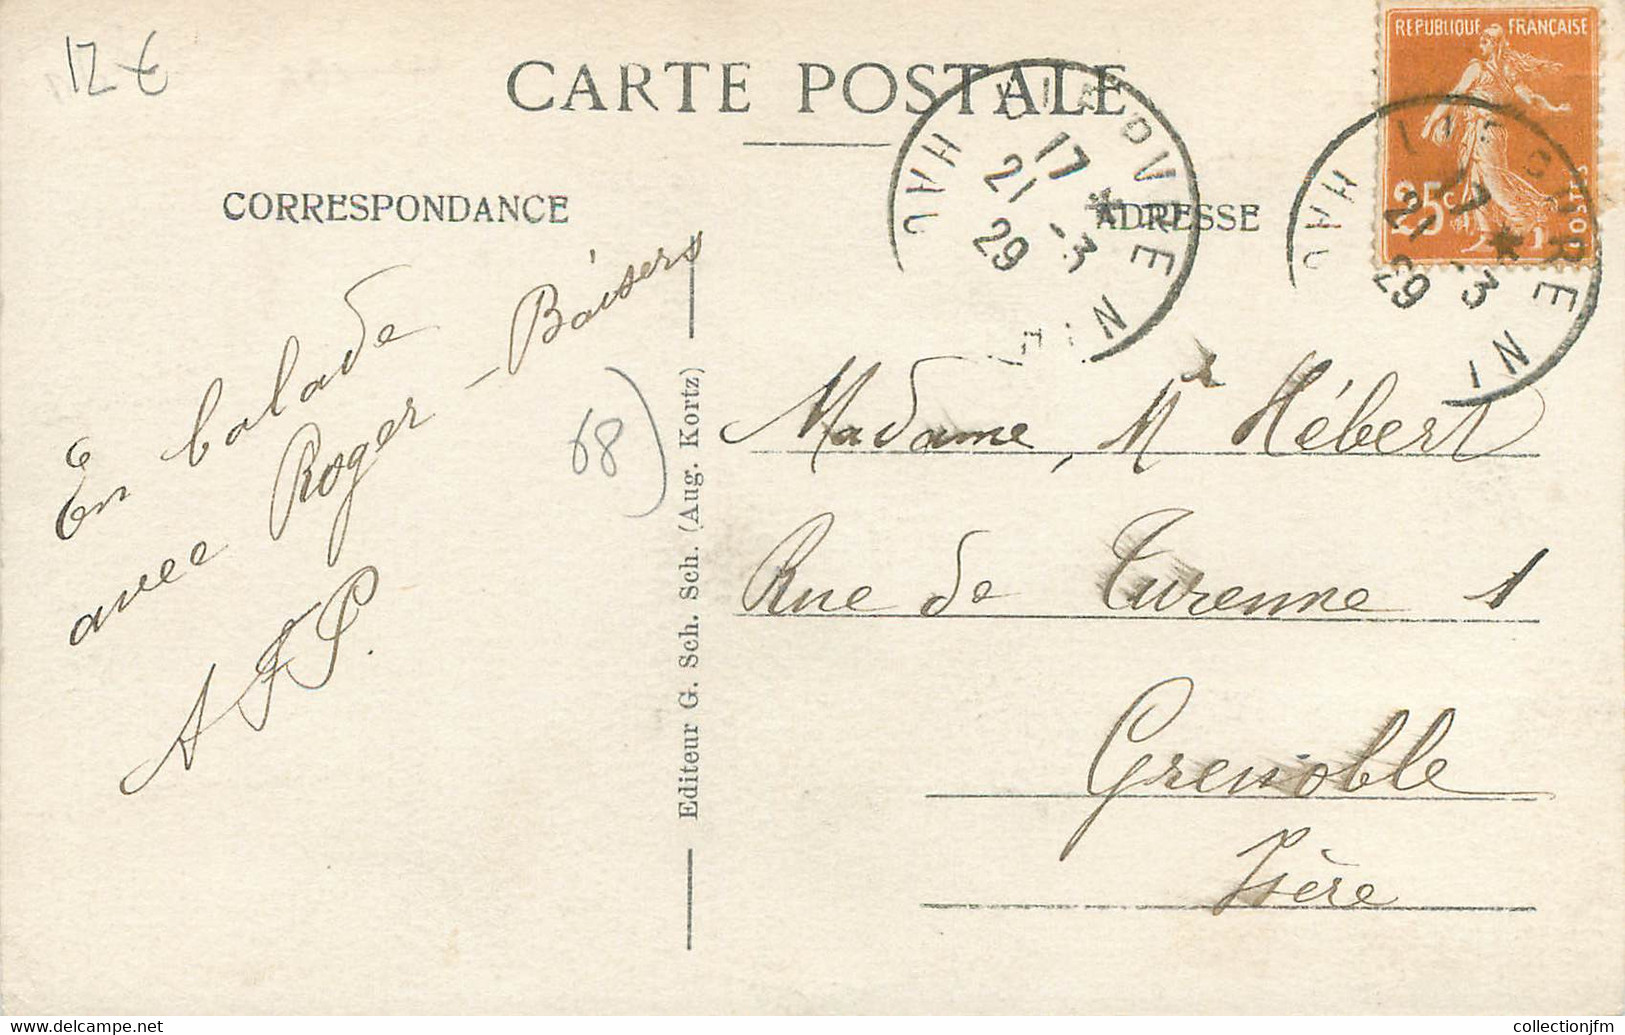 12 €
CARTE POSTALE
REPUBLIQUE FRANÇAISE
25c
POSTES
17 *
21 -3
29
17 *
21 -3
29
CORRESPONDANCE
ADRESSE
En balade
avec Roger - Baisers
68)
Editeur G. Sch. Sch. Sch. (Aug. Kortz)
Madame, Mr Hébert
Rue de Turenne 1
Grenoble
Isère
www.delcampe.net
collectionjfm